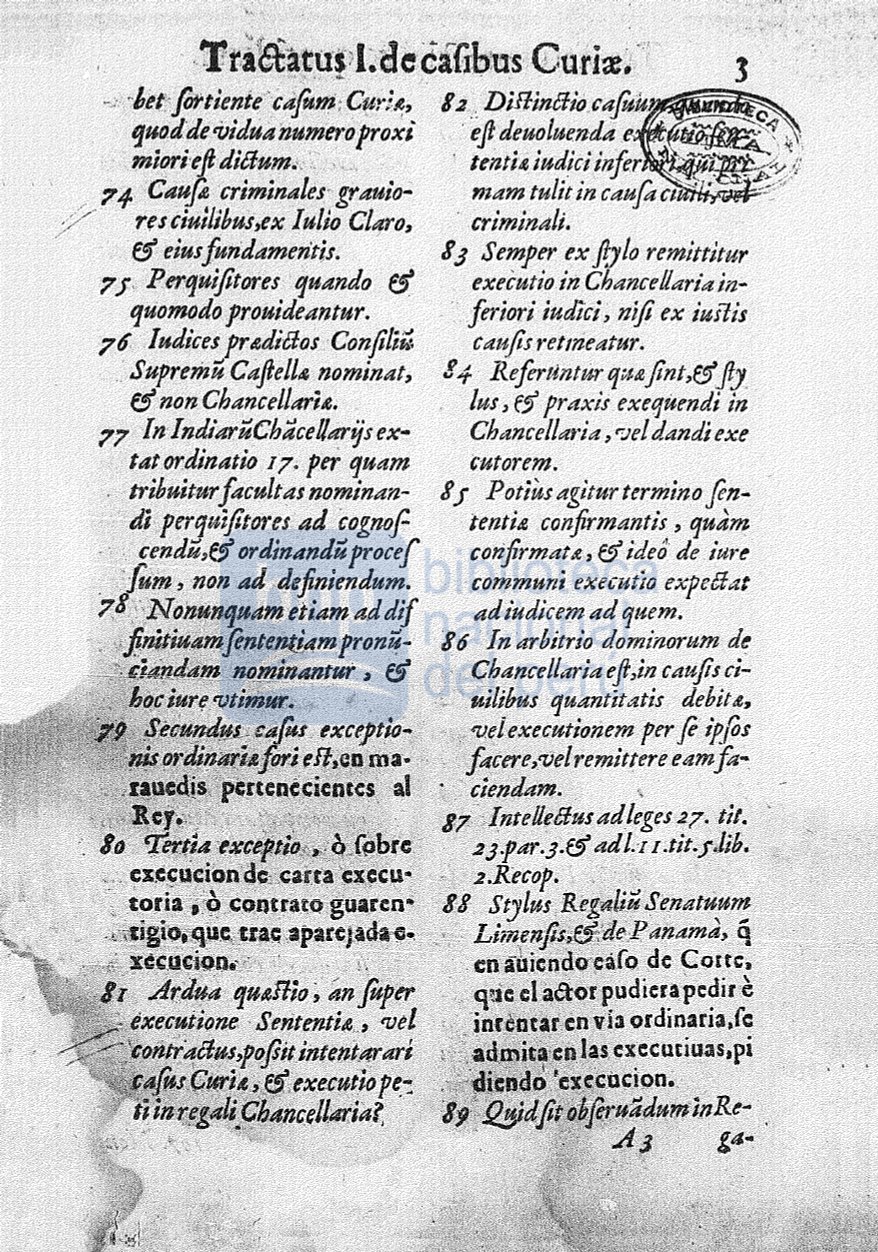 Tractatus I. de casibus Curiæ. 3
bet ſortiente caſum Curiæ,
quod de vidua numero proxi
miori eſt dictum.
74 Cauſæ criminales grauio-
res ciuilibus, ex Iulio Claro,
& eius fundamentis.
75 Perquiſitores quando &
quomodo prouideantur.
76 Iudices prædictos Conſiliũ
Supremũ Caſtellæ nominat,
& non Chancellariæ.
77 In Indiarũ Chãcellarijs ex-
tat ordinatio 17. per quam
tribuitur facultas nominan-
di perquiſitores ad cognoſ-
cendũ, & ordinandũ proceſ
ſum, non ad definiendum.
78 Nonunquam etiam ad dif
finitiuam ſententiam pronũ-
ciandam nominantur, &
hoc iure vtimur.
79 Secundus caſus exceptio-
nis ordinariæ fori eſt, en ma-
rauedis pertenecientes al
Rey.
80 Tertia exceptio, ò ſobre
execucion de carta execu-
toria, ò contrato guaren-
tigio, que trae aparejada e-
xecucion.
81 Ardua quæſtio, an ſuper
executione Sententiæ, vel
contractus, poſsit intentarari
caſus Curiæ, & executio pe-
ti in regali Chancellaria?
82 Diſtinctio caſuum, quando
eſt deuoluenda executio ſen-
tentiæ iudici inferiori, qui pri
mam tulit in cauſa ciuili, vel
criminali.
83 Semper ex ſtylo remittitur
executio in Chancellaria in-
feriori iudici, niſi ex iuſtis
cauſis retineatur.
84 Referuntur quæ ſint, & ſty
lus, & praxis exequendi in
Chancellaria, vel dandi exe
cutorem.
85 Potiùs agitur termino ſen-
tentiæ confirmantis, quàm
confirmatæ, & ideò de iure
communi executio expectat
ad iudicem ad quem.
86 In arbitrio dominorum de
Chancellaria eſt, in cauſis ci-
uilibus quantitatis debitæ,
vel executionem per ſe ipſos
facere, vel remittere eam fa-
ciendam.
87 Intellectus ad leges 27. tit.
23. par. 3. & ad l. 11. tit. 5. lib.
2. Recop.
88 Stylus Regaliũ Senatuum
Limenſis, & de Panamà, q̃
en auiendo caſo de Corte,
que el actor pudiera pedir è
intentar en via ordinaria, ſe
admita en las executiuas, pi
diendo execucion.
89 Quid ſit obſeruãdum in Re-
A 3 ga-
biblioteca
nacional
del perú